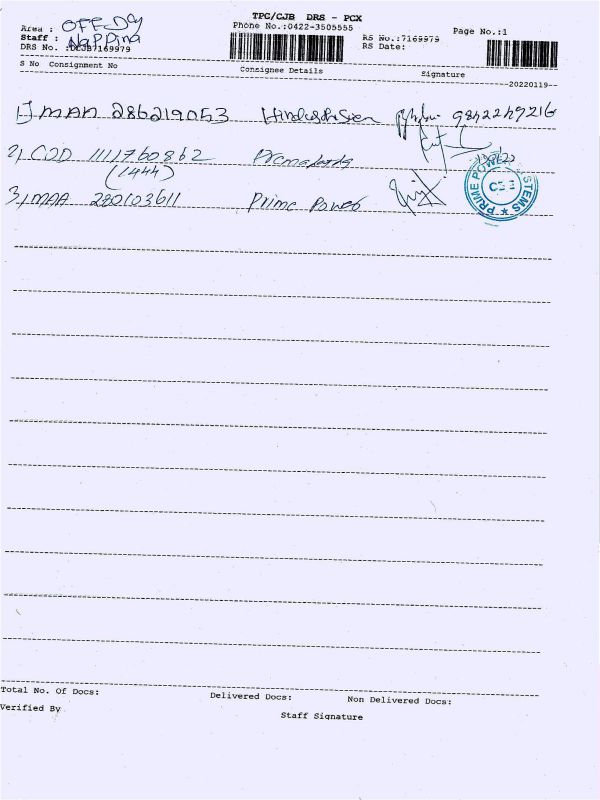 TPC/CJB DRS - PCX
Area : OFF Dg
Phone No.:0422-3505555
Page No.:1
Staff :
RS No.:7169979
DRS No. :DCJB7169979
RS Date:
S No Consignment No Consignee Details Signature
20220119
1) MAA 286219053 9842249216
2) 1111760862
(1444)
3) MAA 280103611 Prime Power
PRIME POWER SYSTEMS
CBE
Total No. Of Docs: Delivered Docs: Non Delivered Docs:
Verified By
Staff Signature